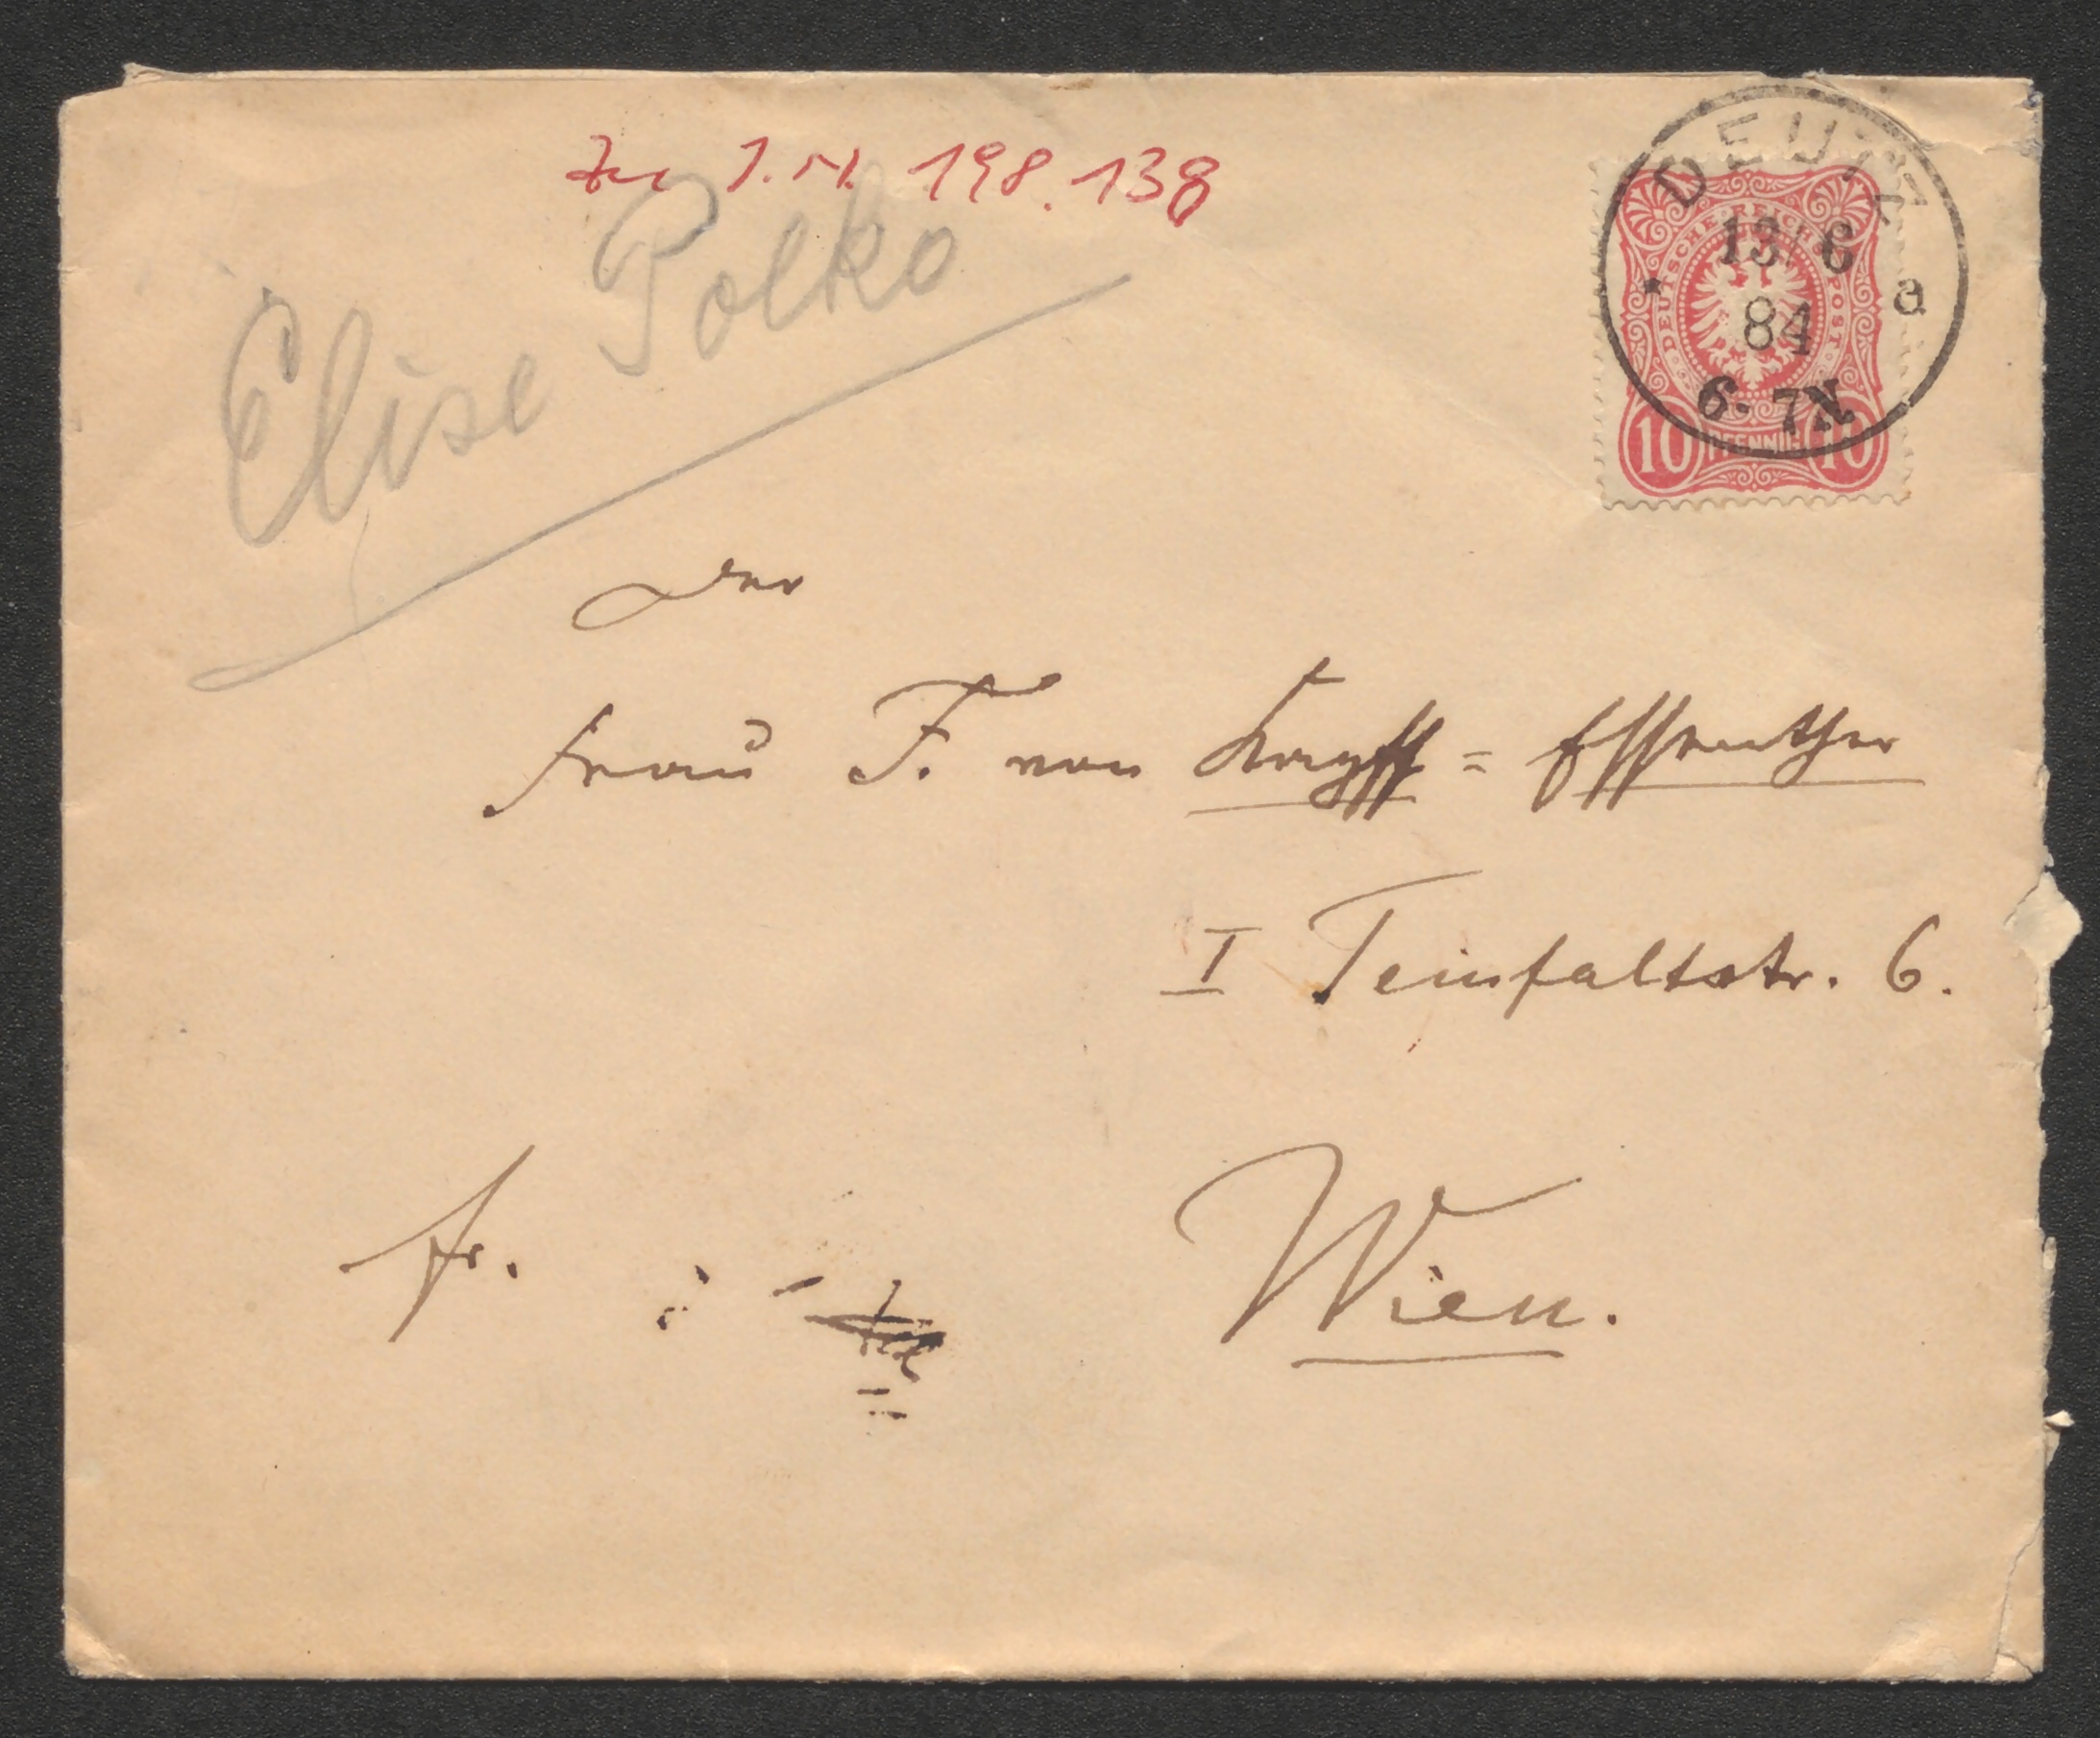 Zu I.N. 198.138
Elise Polko
DEUTZ
13/6
84
a
6-7N.
DEUTSCHE REICHS-POST
10 PFENNIG 10
Der
Frau F. von Kapff = Essenther
I Teinfaltstr. 6.
fr.
Wien.